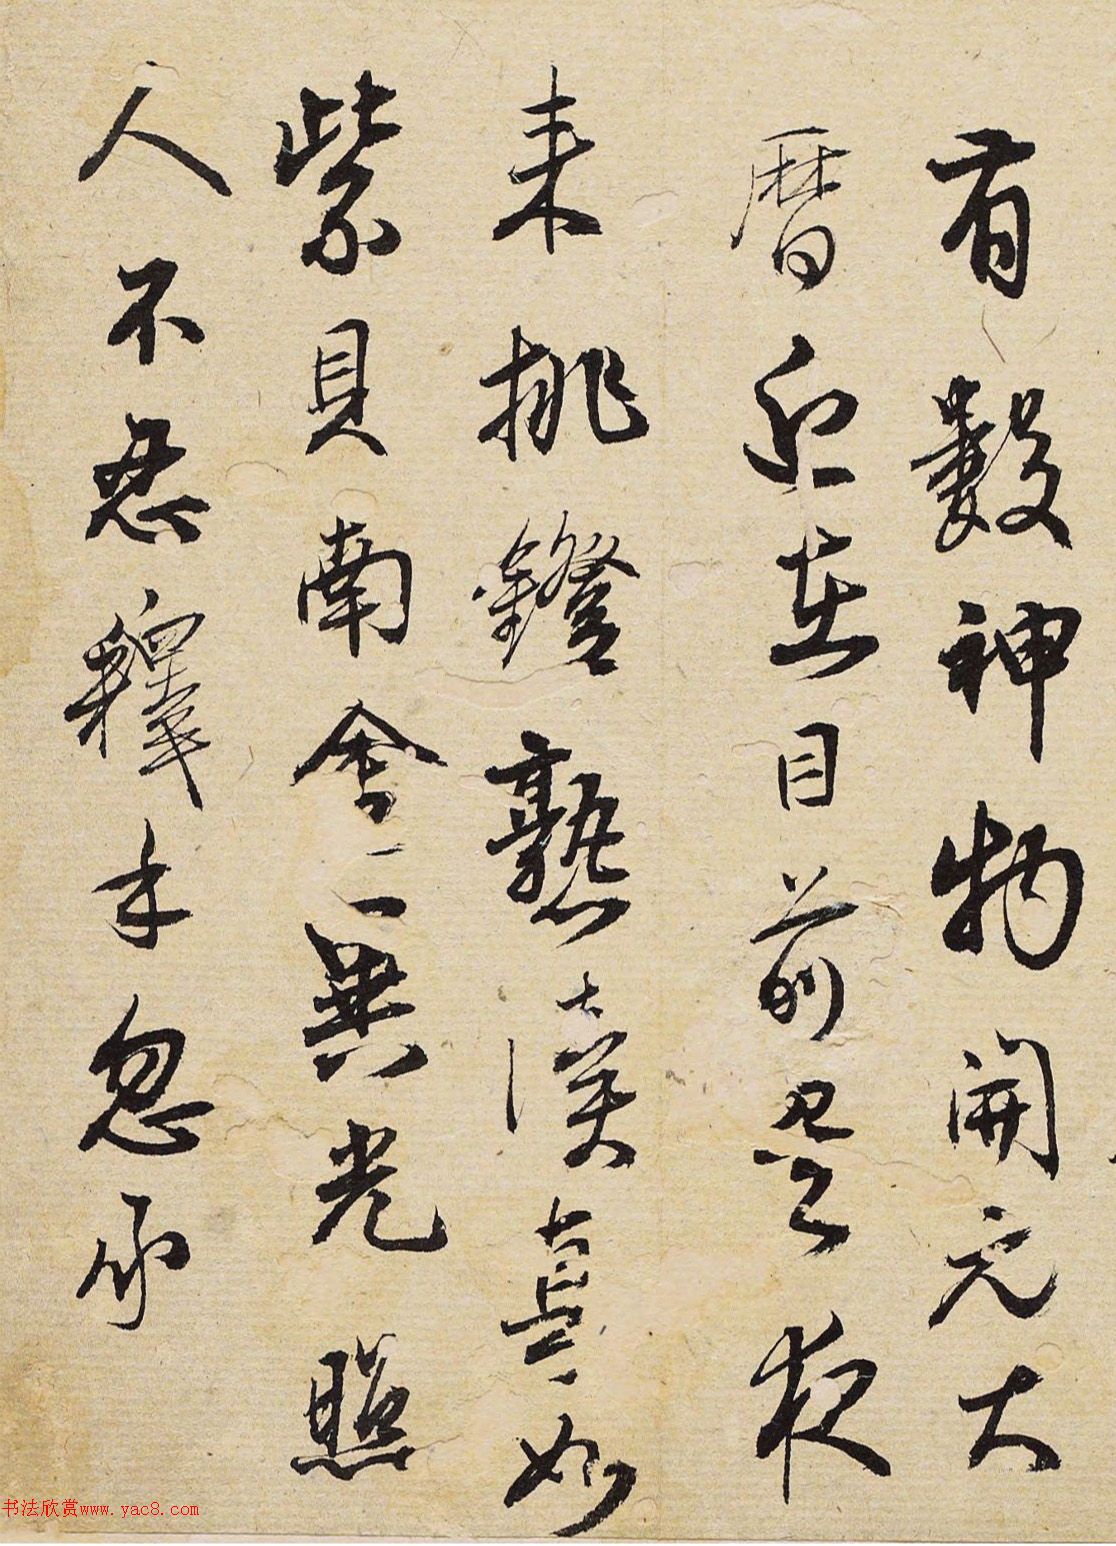 有數神物開元大
曆近在目前是夜
来挑鐙熟讀喜如
紫貝南金二異光照
人不忍釋手忽承
书法欣赏www.yac8.com